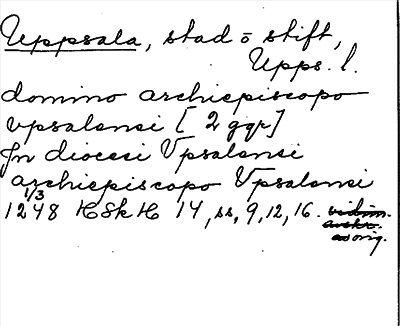 Uppsala, stad o stift,
Upps. l.
domino archiepiscopo
vpsalensi [2 ggr]
In diocesi Vpsalensi
archiepiscopo Vpsalensi
1/3
1248 HSkH 14, ss, 9, 12, 16. vidim.
avskr.
av orig.